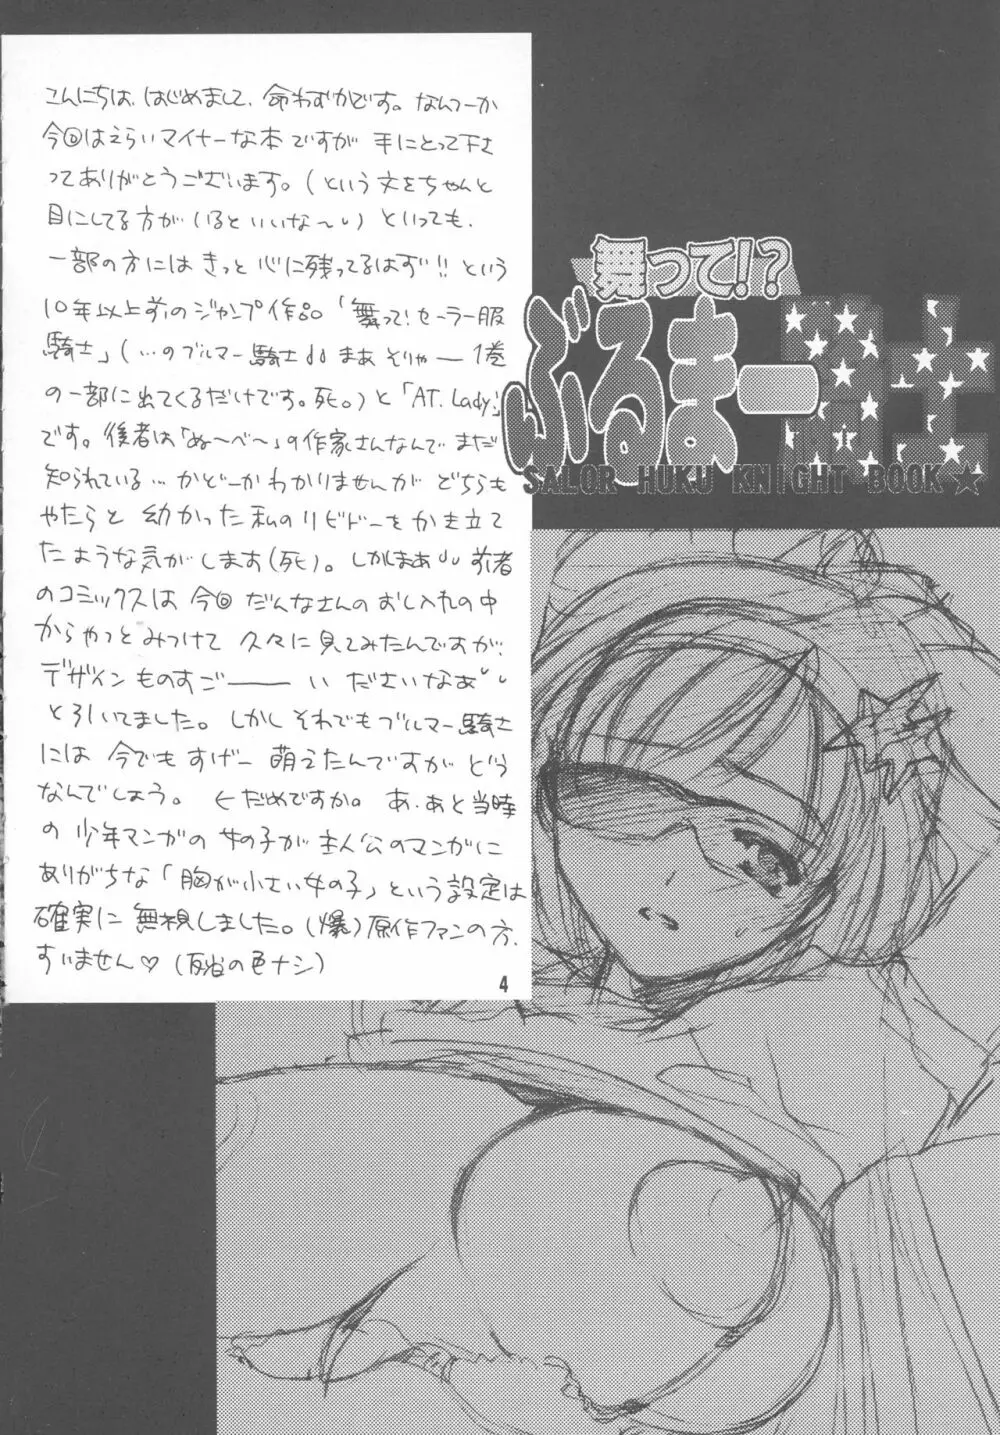 こんにちは、はじめまして、命わずかです。なんつーか
今回はえらいマイナーな本ですが 手にとって下さ
ってありがとうございます。(という文をちゃんと
目にしてる方がいるといいな〜)といっても、
一部の方にはきっと心に残ってるはず!!という
10年以上前のジャンプ作品「舞って!セーラー服
騎士」(…のブルマー騎士 まあそりゃー1巻
の一部に出てくるだけです。死。)と「AT.Lady」
です。後者は「ぬ〜べ〜」の作家さんなんでまだ
知られている…かどーかわかりませんが どちらも
やたらと 幼かった私のリビドーをかき立て
たような気がします(死)。しかしまあ 前者
のコミックスは 今回 だんなさんのおし入れの中
からやっとみつけて 久々に見てみたんですが、
デザインものすごーーーい ださいなあ
と引いてました。しかしそれでもブルマー騎士
には 今でもすげー萌えたんですが どう
なんでしょう。←だめですか。あ、あと当時
の 少年マンガの 女の子が主人公のマンガに
ありがちな「胸が小さい女の子」という設定は
確実に 無視しました。(爆)原作ファンの方、
すいません♡(反省の色ナシ)
4
舞って!?
ぶるまー騎士
SALOR HUKU KNIGHT BOOK★